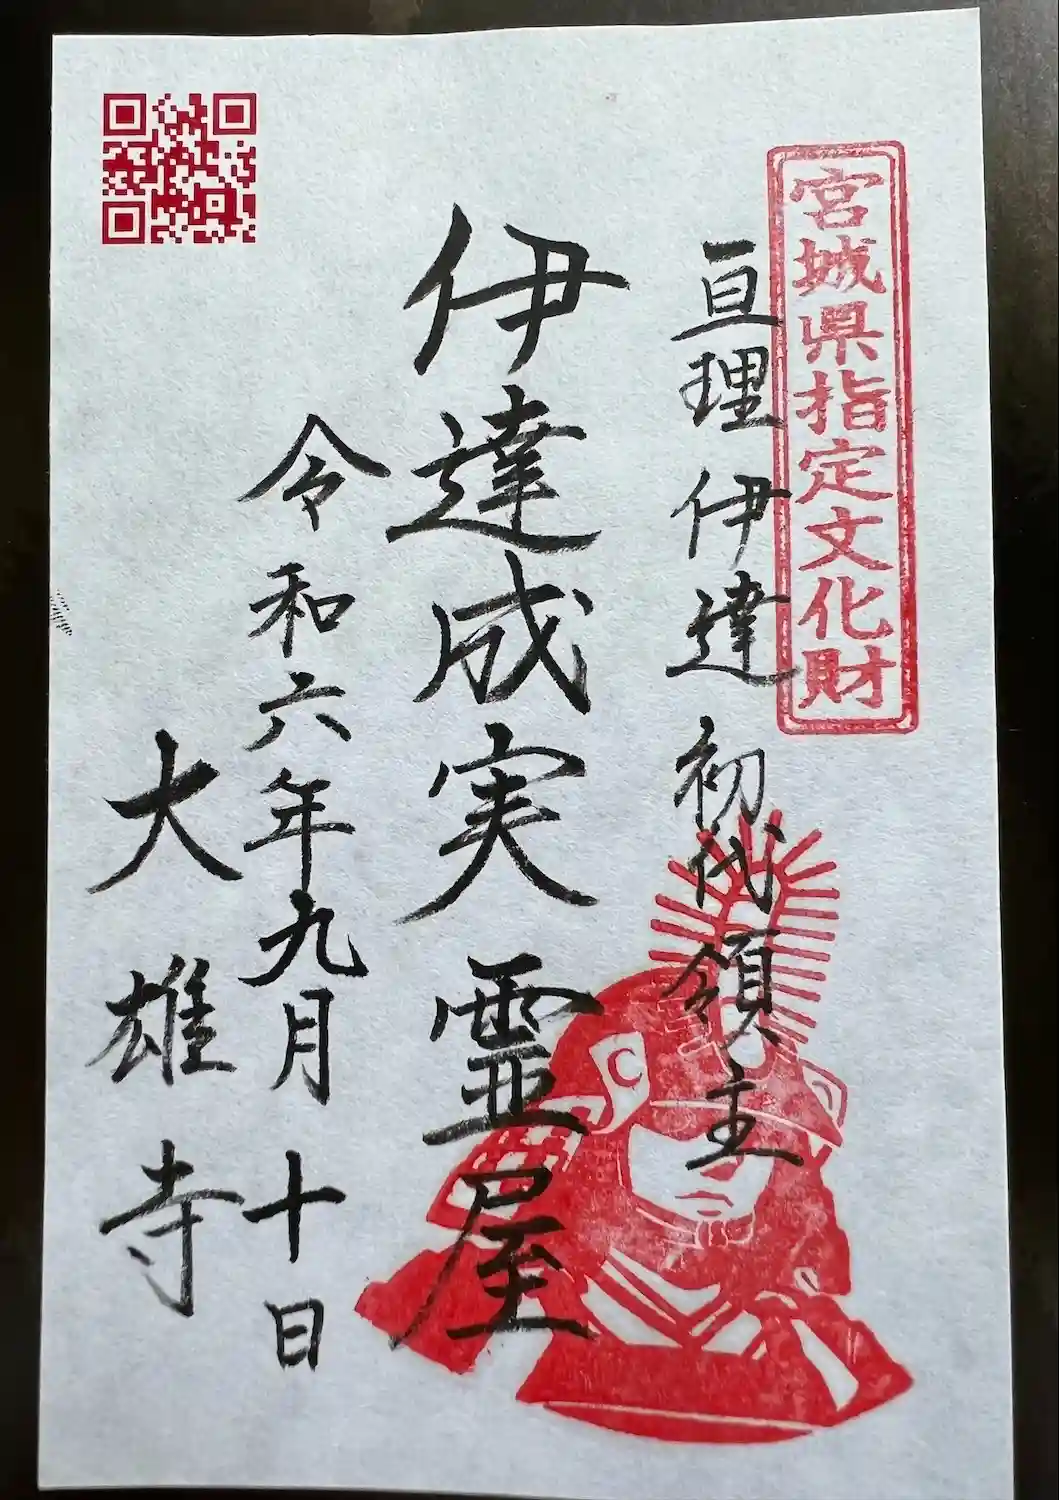 宮城県指定文化財
亘理伊達初代領主
伊達成実霊屋
令和六年九月十日
大雄寺